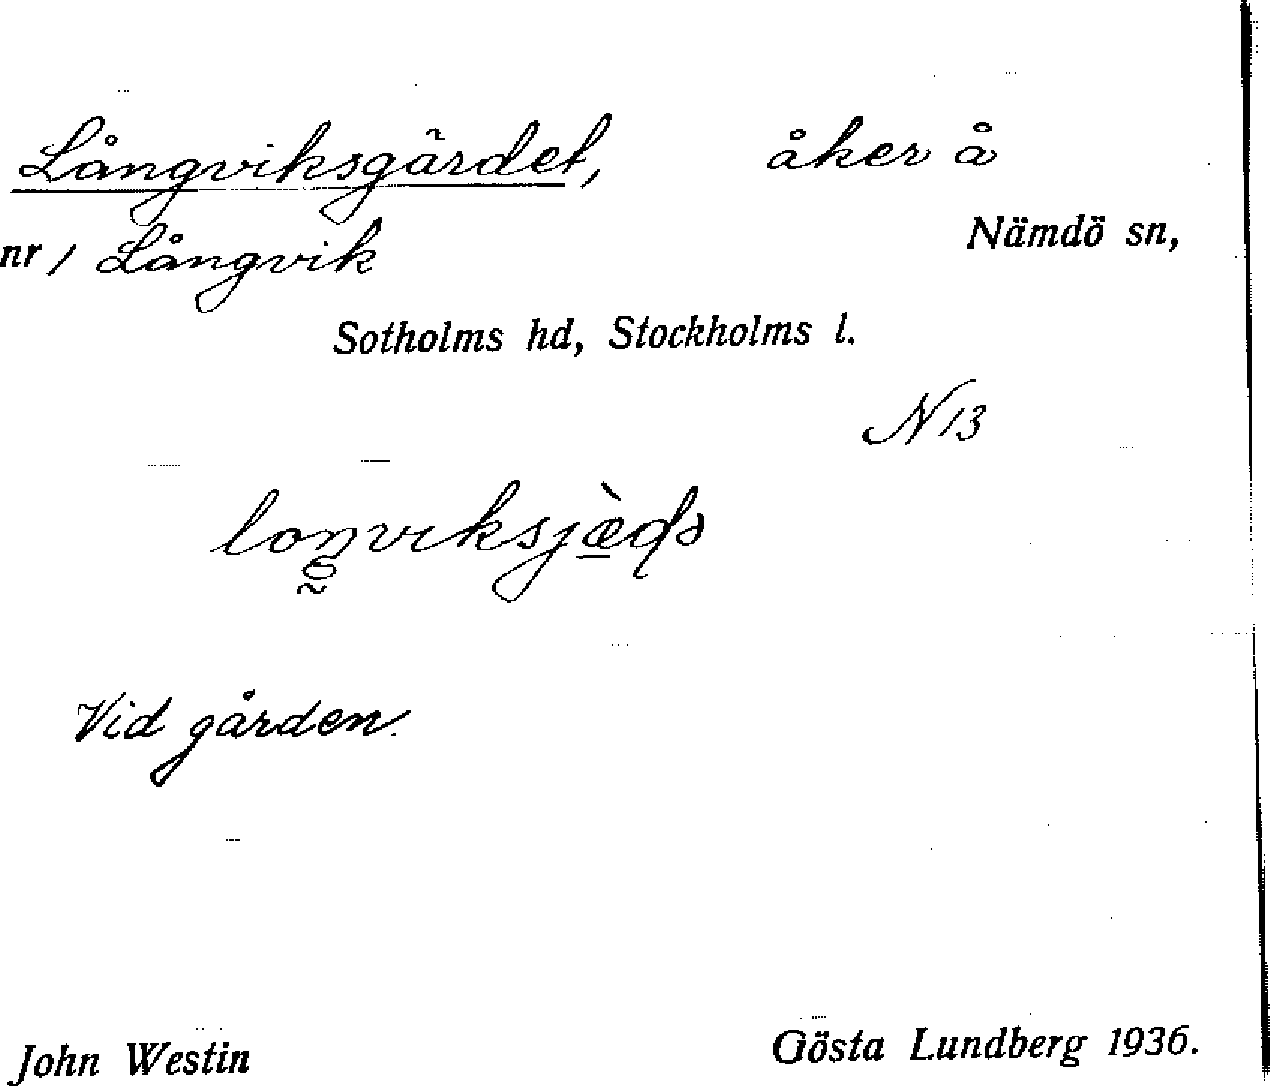 Långviksgärdet, åker å
nr 1 Långvik Nämdö sn,
Sotholms hd, Stockholms l.
N 13
Vid gården.
John Westin Gösta Lundberg 1936.